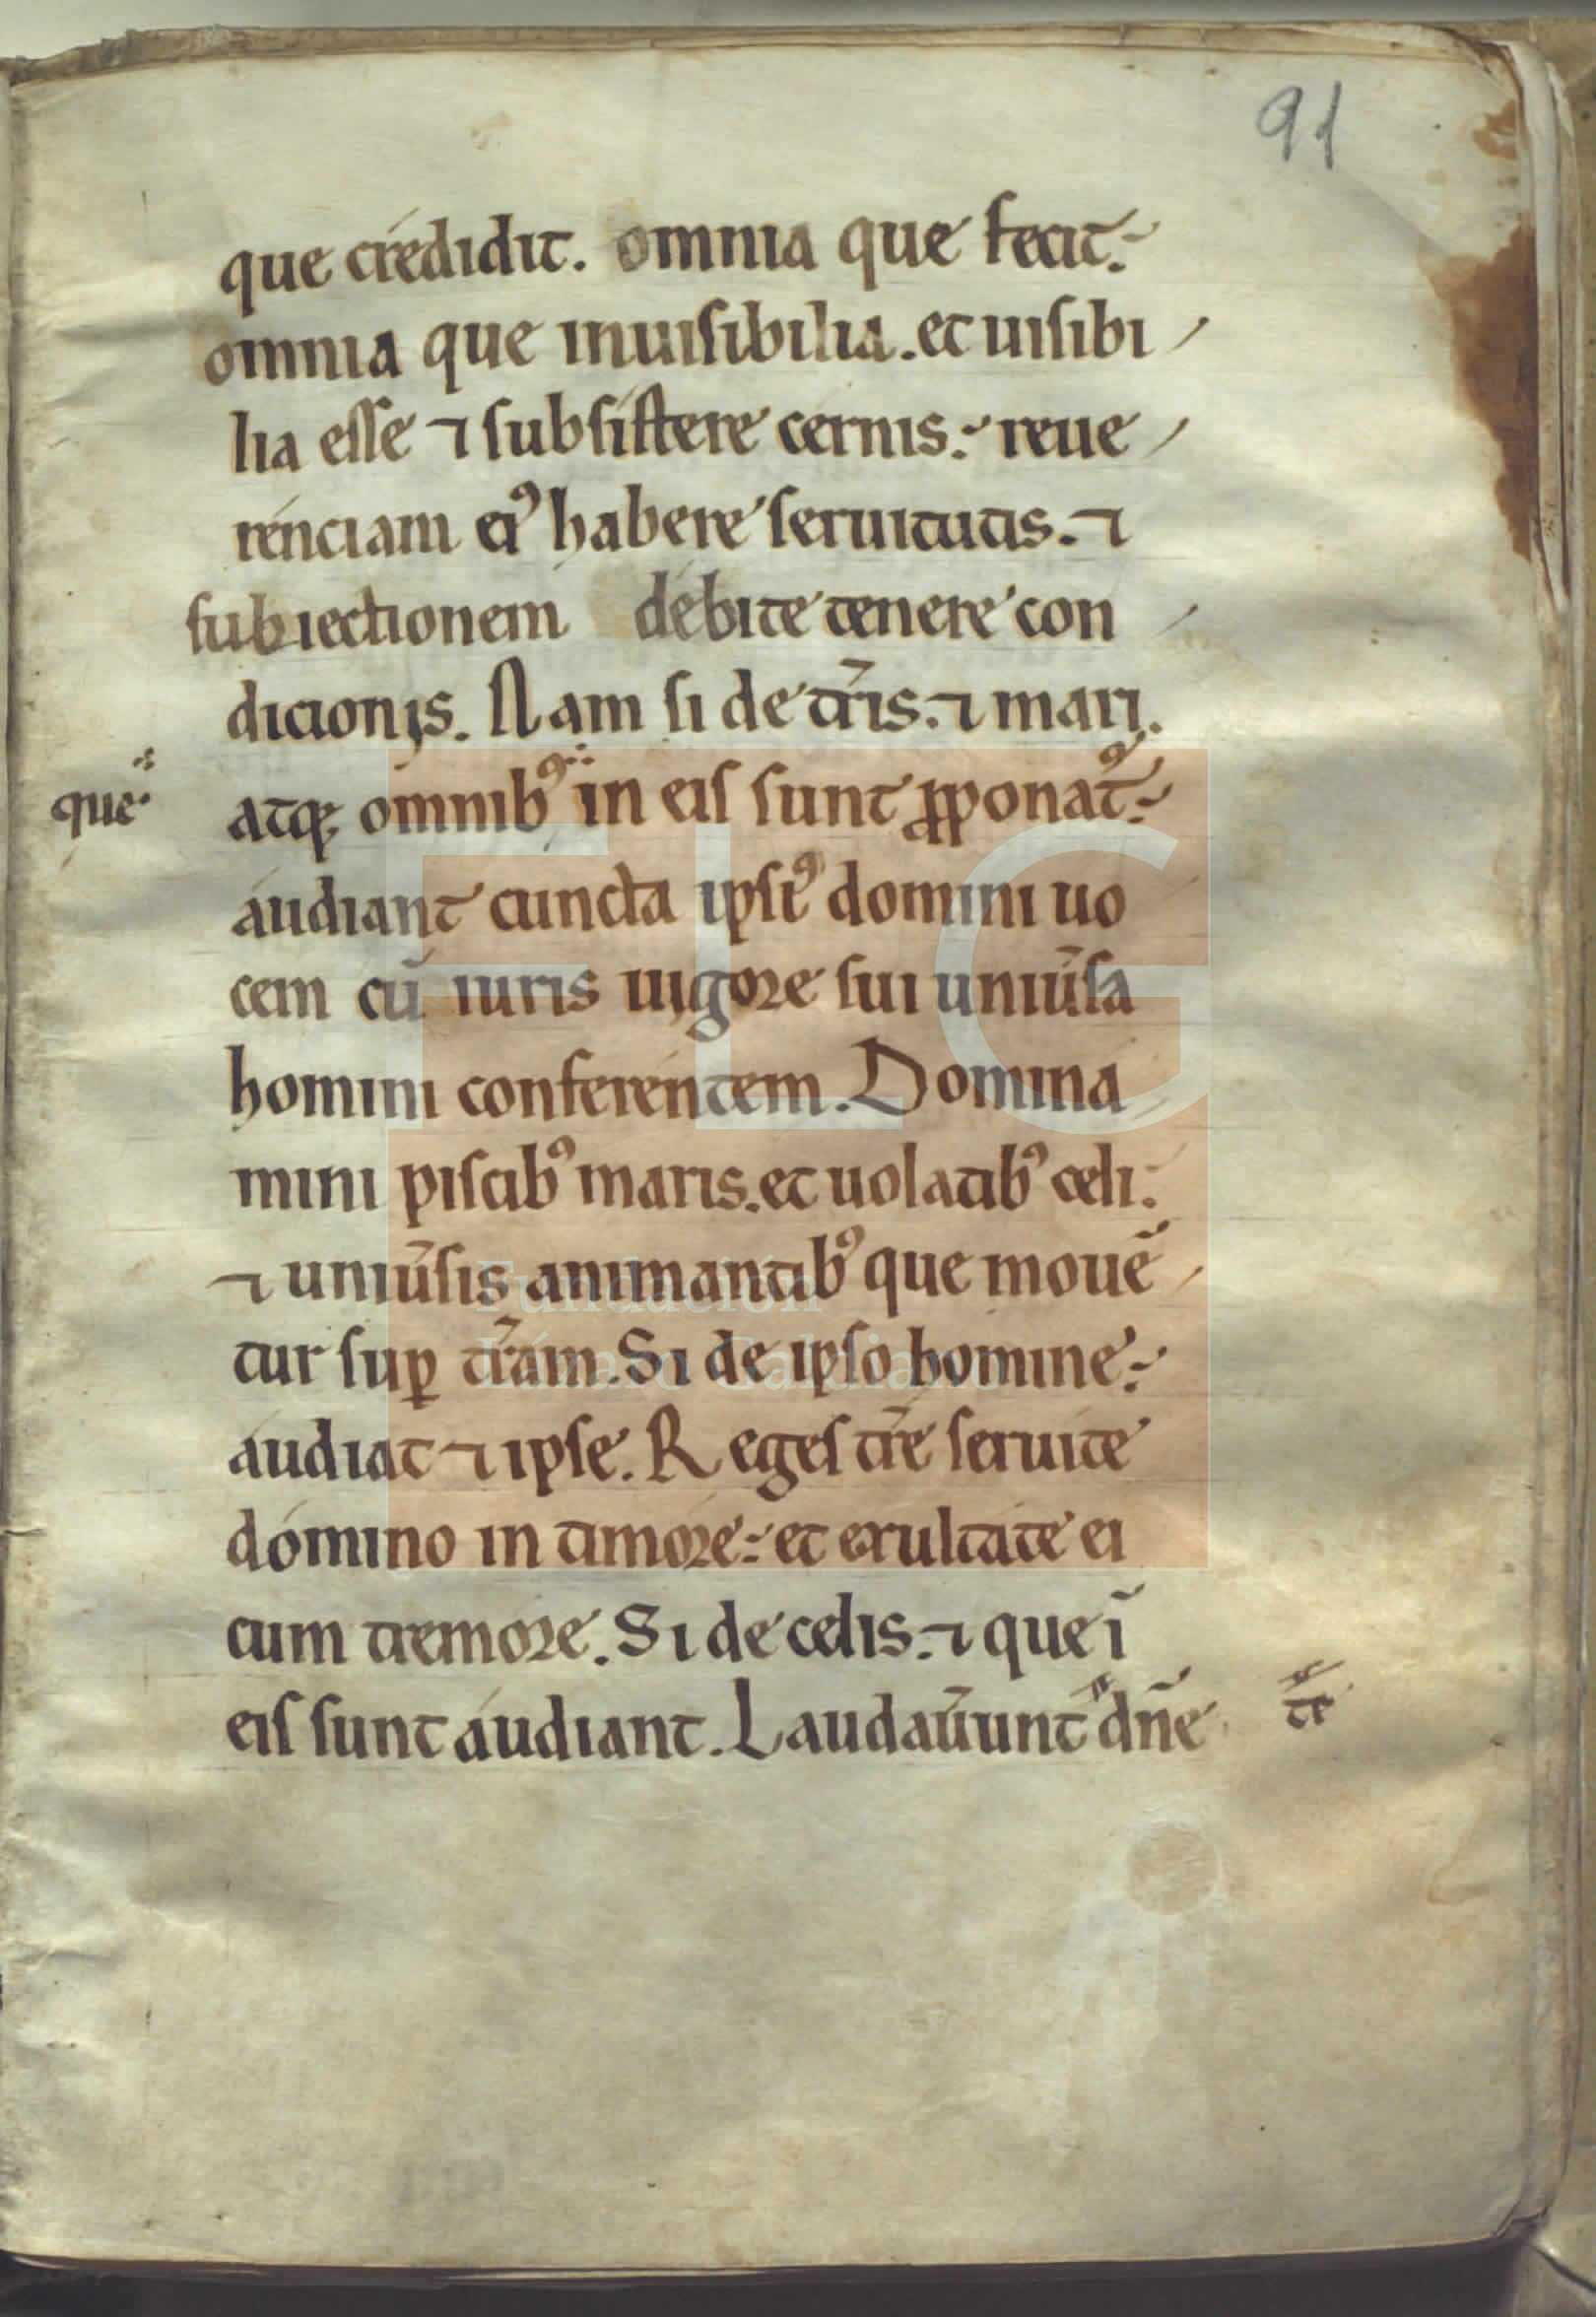 91
que credidit. omnia que fecit.
omnia que inuisibilia. et uisibi
lia esse ⁊ subsistere cernis. reue
renciam eiꝰ habere seruitutis. ⁊
subiectionem debite tenere con
dicionis. Nam si de tr̄is. ⁊ mari.
que
atqꝫ omnibꝰ in eis sunt ꝓponatᷣ.
audiant cuncta ipsiꝰ domini uo
cem cū iuris uigore sui uniūsa
homini conferentem. Domina
mini piscibꝰ maris. et uolatibꝰ celi.
⁊ uniūsis animantibꝰ que mouē
tur suꝑ tr̄am. Si de ipso homine.
audiat ⁊ ipse. Reges tr̄e seruite
domino in timore. et exultate ei
cum tremore. Si de celis. ⁊ que ī
eis sunt audiant. Laudaūunt dn̄e
te
FLG
Fundación
Lázaro Galdiano